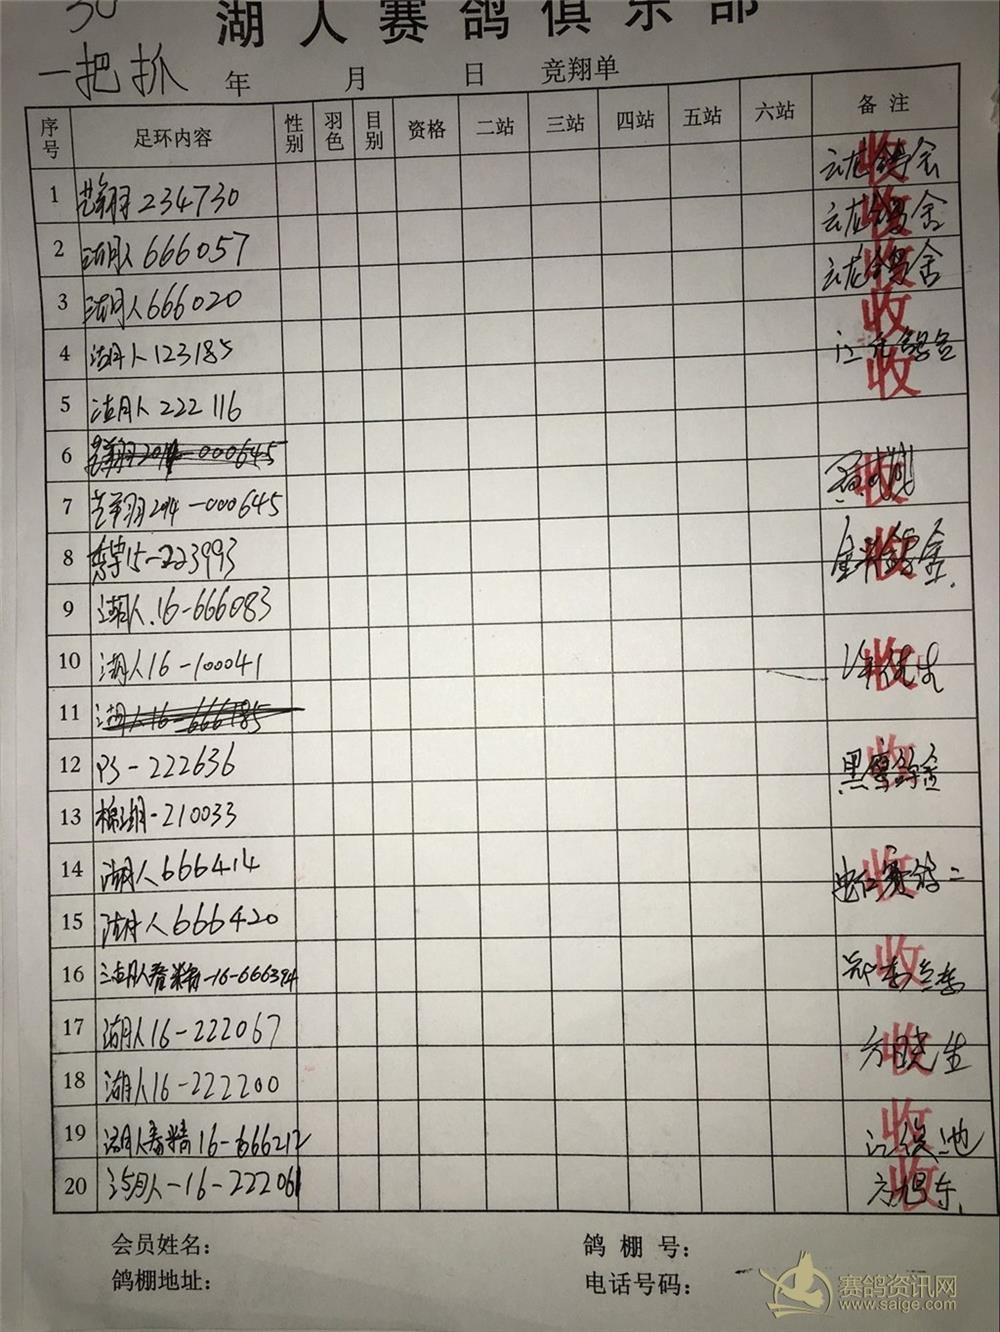 30
湖人赛鸽俱乐部
一把抓 年 月 日 竞翔单
序号 足环内容 性别 羽色 目别 资格 二站 三站 四站 五站 六站 备注
1 234730 云龙鸽舍 收
2 湖人666057 云龙鸽舍 收
3 湖人666020 云龙鸽舍 收
4 湖人123185 收
5 湖人222116 收
6 000645
7 翔2014-000645 收
8 15-223993 收
9 湖人.16-666083
10 湖人16-100041 收
11 湖人16-666185
12 PS-222636 黑 收
13 棉湖-210033
14 湖人666414 赛鸽 收
15 湖人666420
16 湖人春精-16-666394 收
17 湖人16-222067 方晓生 收
18 湖人16-222200
19 湖人春精16-666212 江俊池 收
20 湖人-16-222061 方旭东 收
会员姓名： 鸽棚号：
鸽棚地址： 电话号码：
赛鸽资讯网
www.saige.com